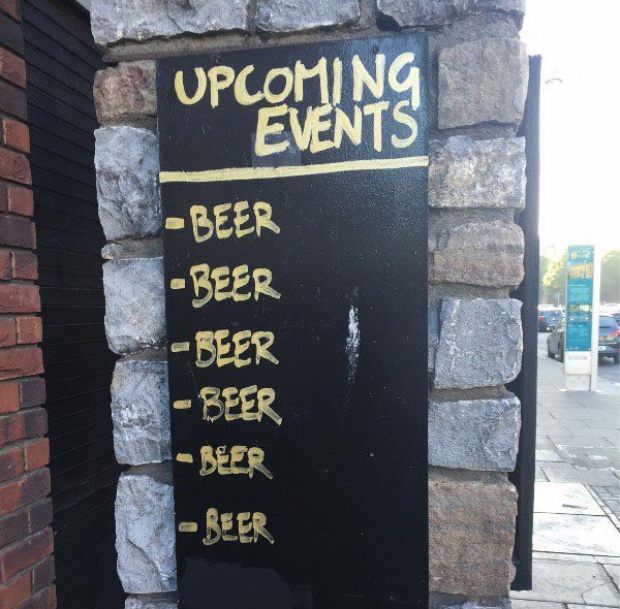 UPCOMING
EVENTS
- BEER
- BEER
- BEER
- BEER
- BEER
- BEER